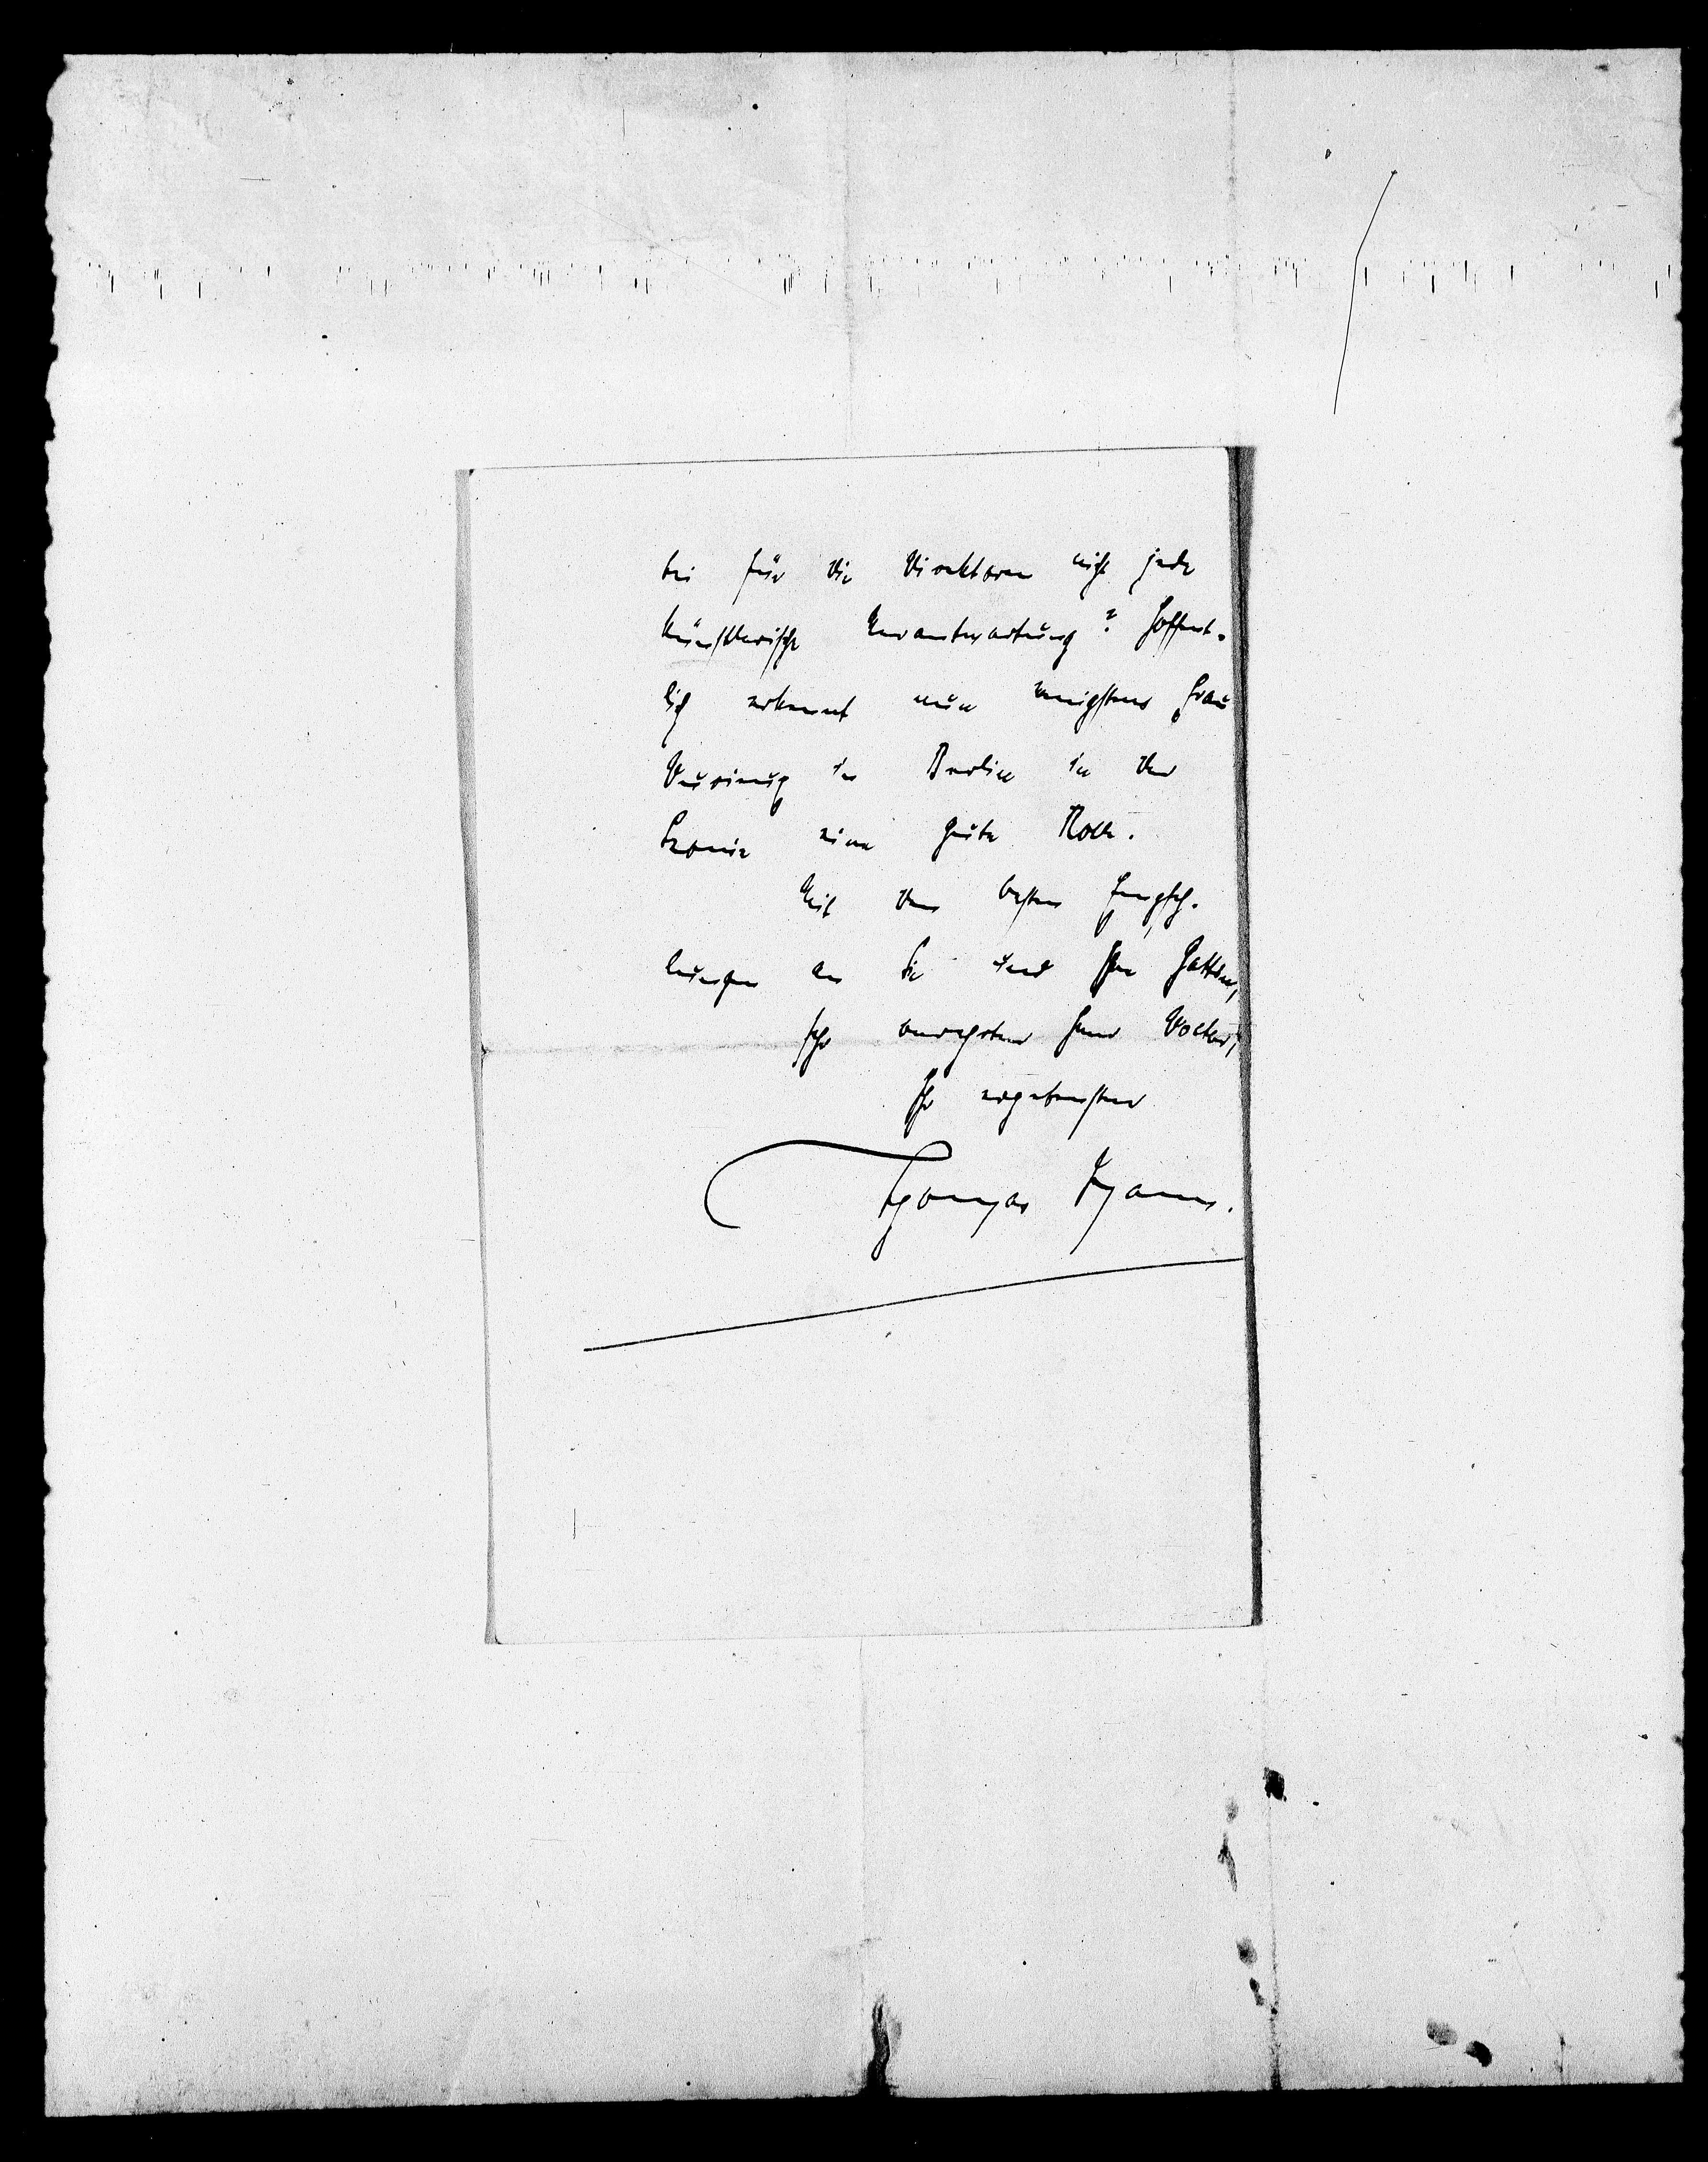 bei für die Direktoren nicht jede
künstlerische Verantwortung? Hoffent-
lich erkennt nun wenigstens Frau
in Berlin in der
eine gute Rolle.
Mit den besten Empfeh-
lungen an Sie und Ihre Gattin,
sehr verehrter Herr Doktor,
Ihr ergebenster
Thomas Mann.